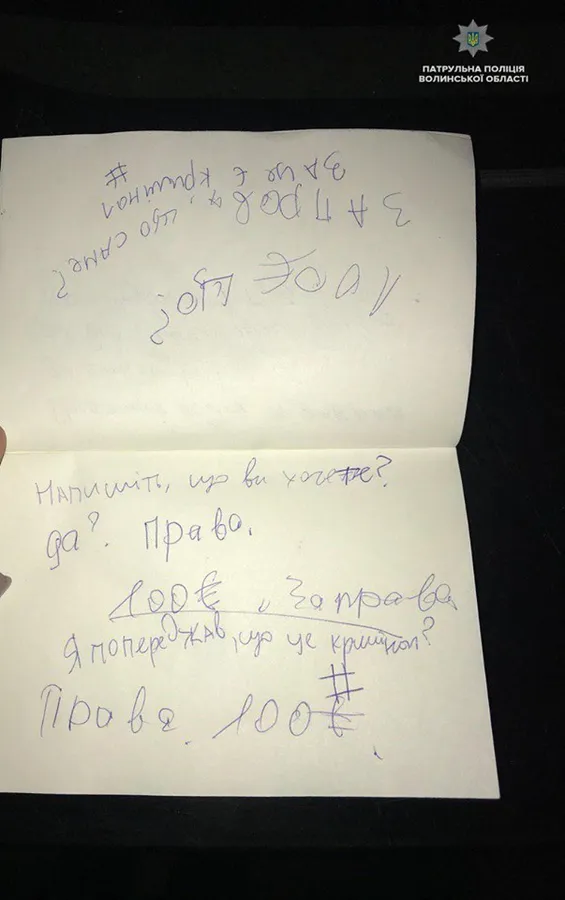 ПАТРУЛЬНА ПОЛІЦІЯ
ВОЛИНСЬКОЇ ОБЛАСТІ
100€ що?
ЗА що саме?
ЗА це є кримінал
#
Напишіть, що ви хочете?
да? Права.
100€, За права.
Я попереджав, що це кримінал?
#
Права. 100€.